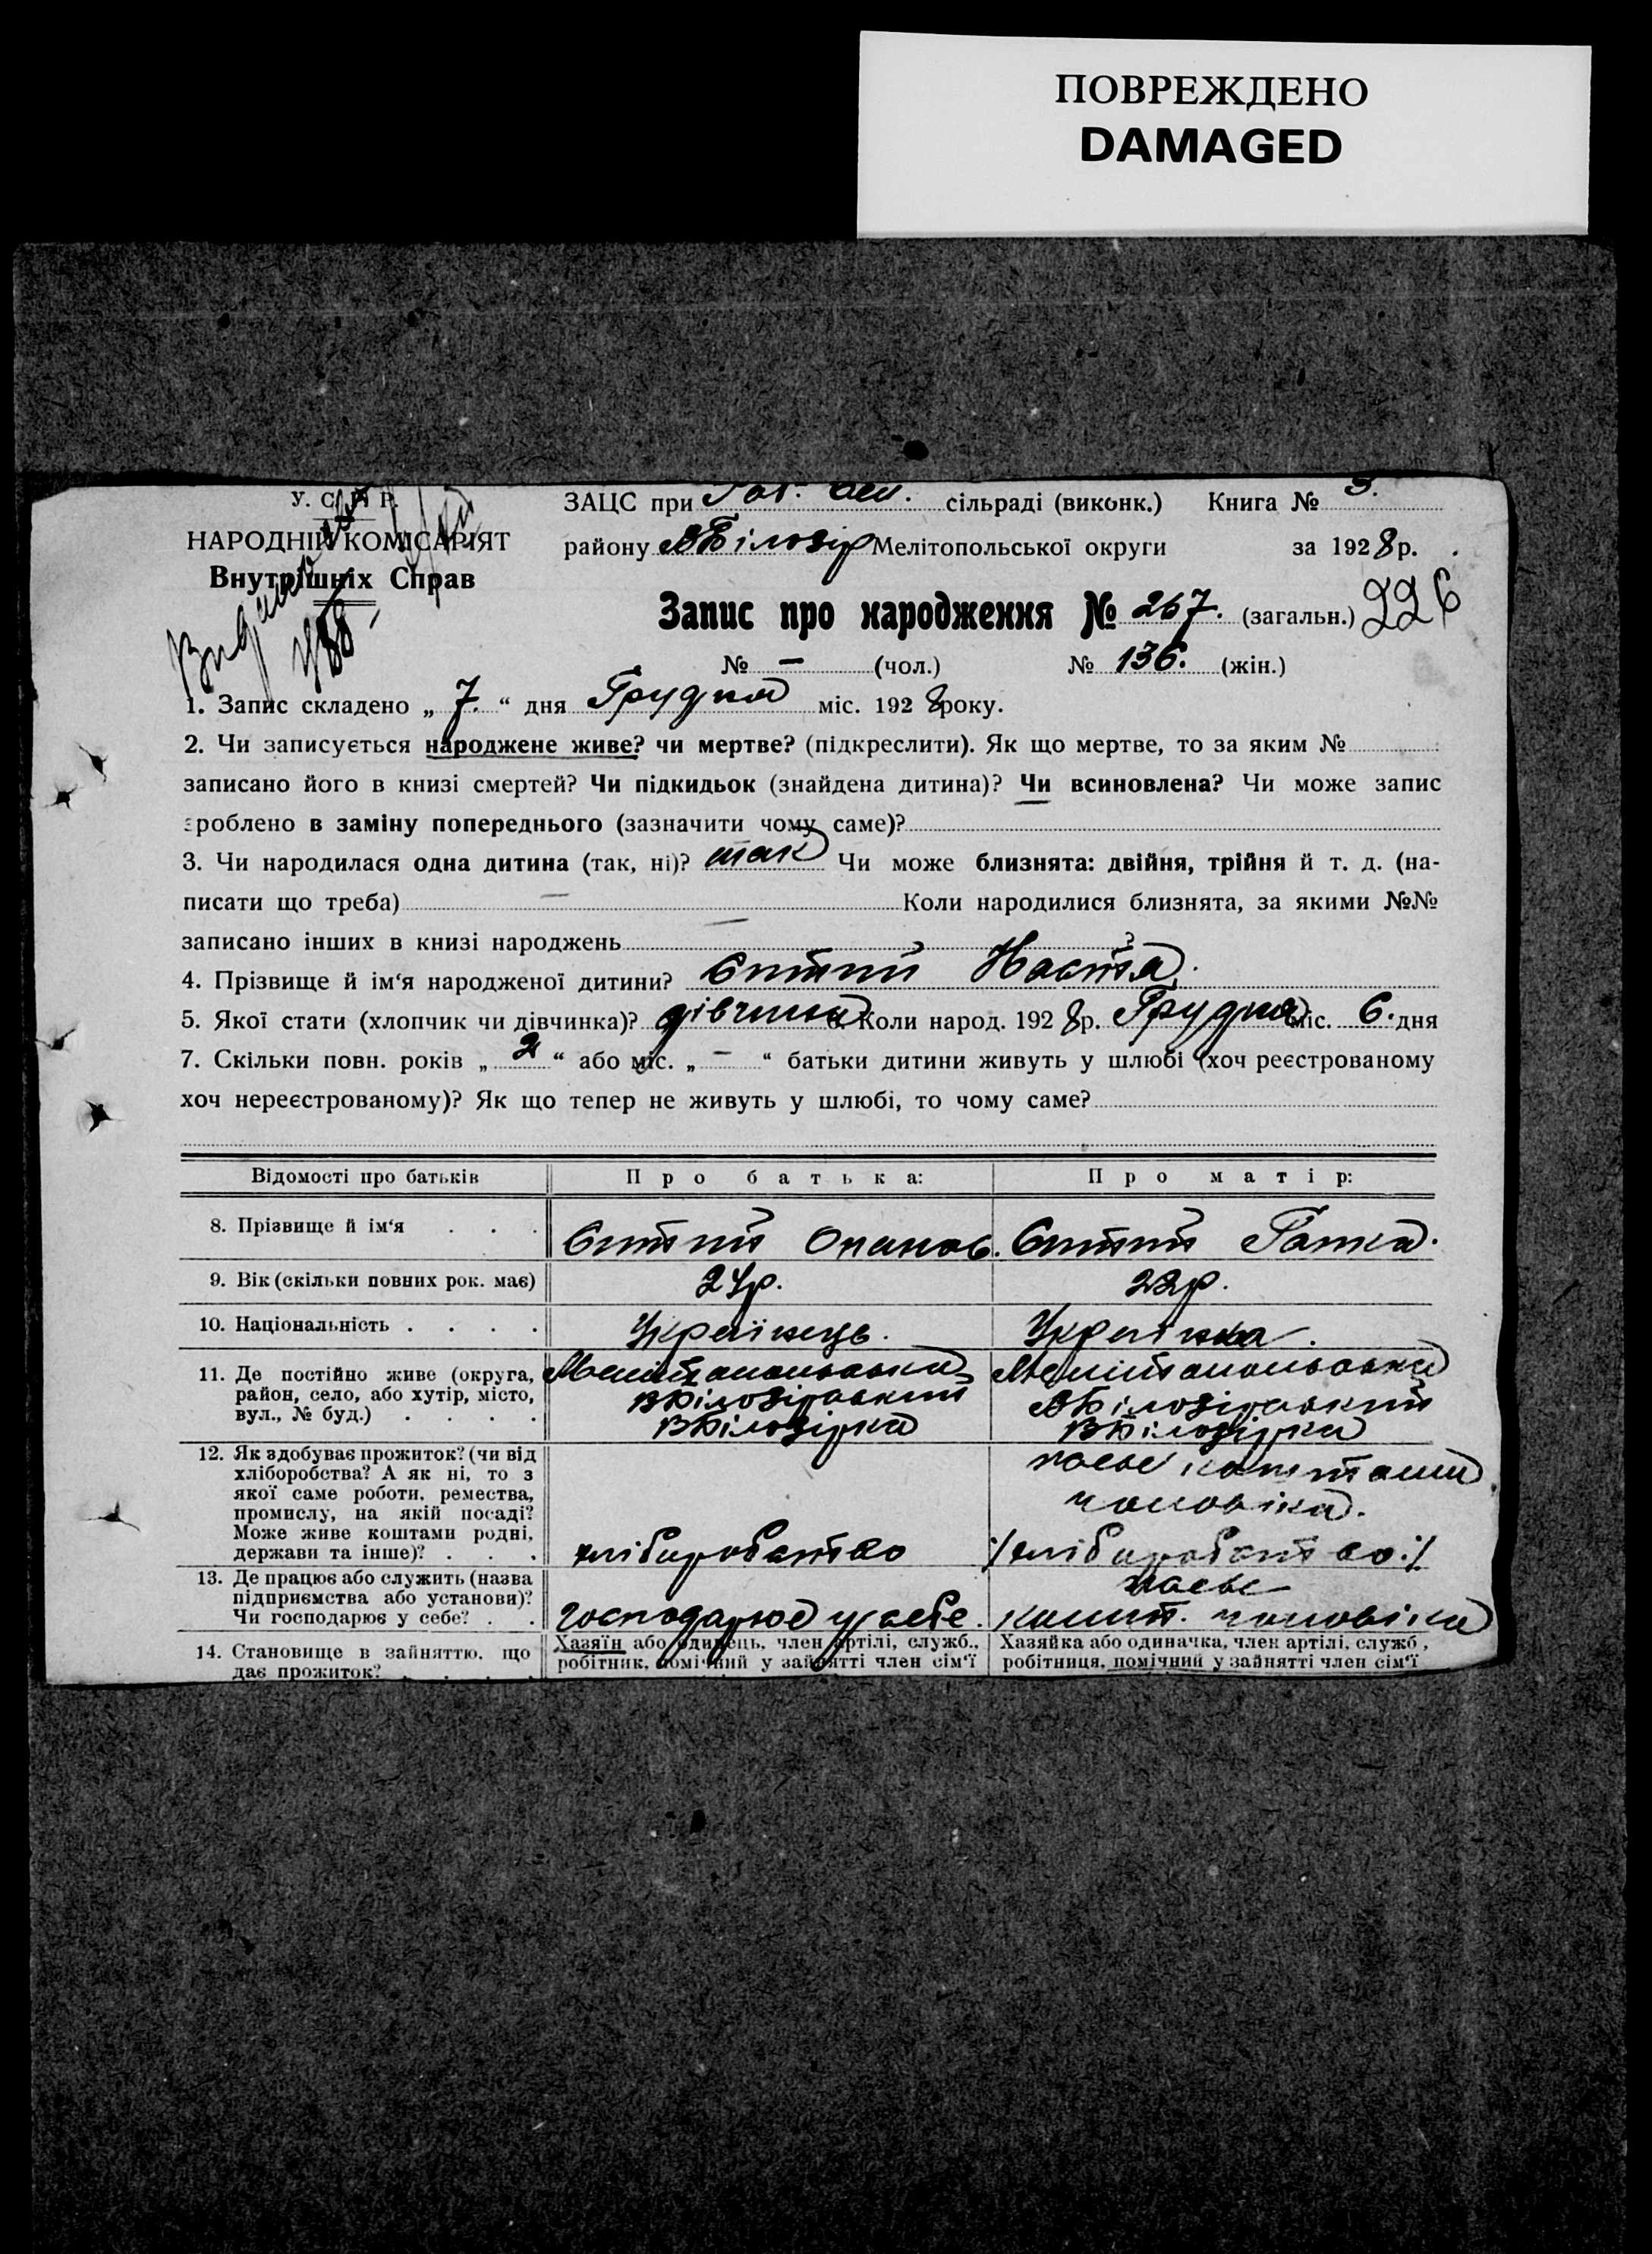 ПОВРЕЖДЕНО
DAMAGED
У. С. Р. Р.
НАРОДНІЙ КОМІСАРІЯТ
Внутрішніх Справ
ЗАЦС при сільраді (виконк.) Книга № 3.
району В Білозір Мелітопольської округи за 1928 р.
Запис про народження № 267. (загальн.) 226
№ — (чол.) № 136. (жін.)
1. Запис складено „ 7. “ дня Грудня міс. 1928 року.
2. Чи записується народжене живе? чи мертве? (підкреслити). Як що мертве, то за яким №
записано його в книзі смертей? Чи підкидьок (знайдена дитина)? Чи всиновлена? Чи може запис
зроблено в заміну попереднього (зазначити чому саме)?
3. Чи народилася одна дитина (так, ні)? так Чи може близнята: двійня, трійня й т. д. (на-
писати що треба) — Коли народилися близнята, за якими №№
записано інших в книзі народжень — ?
4. Прізвище й ім‘я народженої дитини? Ситий Настя.
5. Якої стати (хлопчик чи дівчинка)? дівчина 6. Коли народ. 1928 р. Грудня міс. 6. дня
7. Скільки повн. років „ 2 “ або міс. „ — “ батьки дитини живуть у шлюбі (хоч реєстрованому
хоч нереєстрованому)? Як що тепер не живуть у шлюбі, то чому саме?
Відомості про батьків Про батька: Про матір:
8. Прізвище й ім‘я Ситий Опанас. Ситий Гапка.
9. Вік (скільки повних рок. має) 24р. 22р.
10. Національність Українець. Українка.
11. Де постійно живе (округа, Мелітопольська Мелітопольська
район, село, або хутір, місто, ВБілозірський ВБілозірський
вул., № буд.) ВБілозірка ВБілозірка
12. Як здобуває прожиток? (чи від
хліборобства? А як ні, то з коштами
якої саме роботи, ремества, чоловіка.
промислу, на якій посаді?
Може живе коштами родні,
держави та інше)? хліборобство /хліборобство/
13. Де працює або служить (назва
підприємства або установи)?
Чи господарює у себе? господарює у себе. кошт. чоловіка
14. Становище в зайняттю, що Хазяїн або одинець, член артілі, служб., Хазяйка або одиначка, член артілі, служб.,
дає прожиток? робітник, помічний у зайнятті член сім‘ї робітниця, помічний у зайнятті член сім‘ї